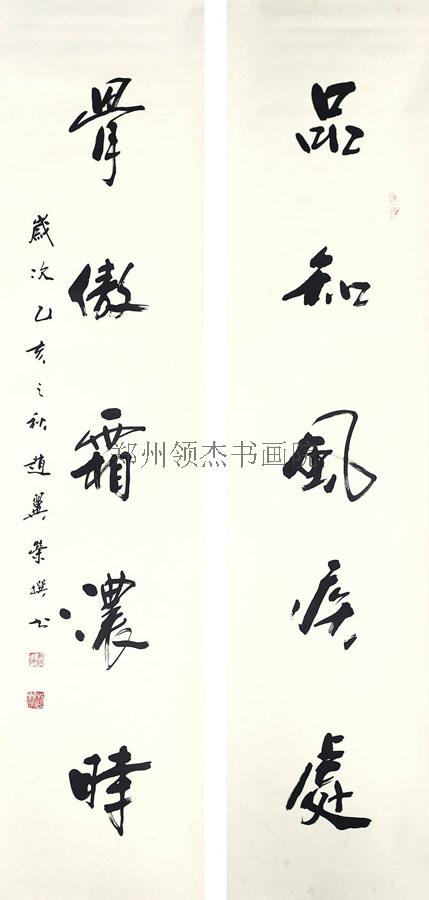 品知風疾處
骨傲霜濃時
歲次乙亥之秋趙翼榮撰書
郑州领杰书画院